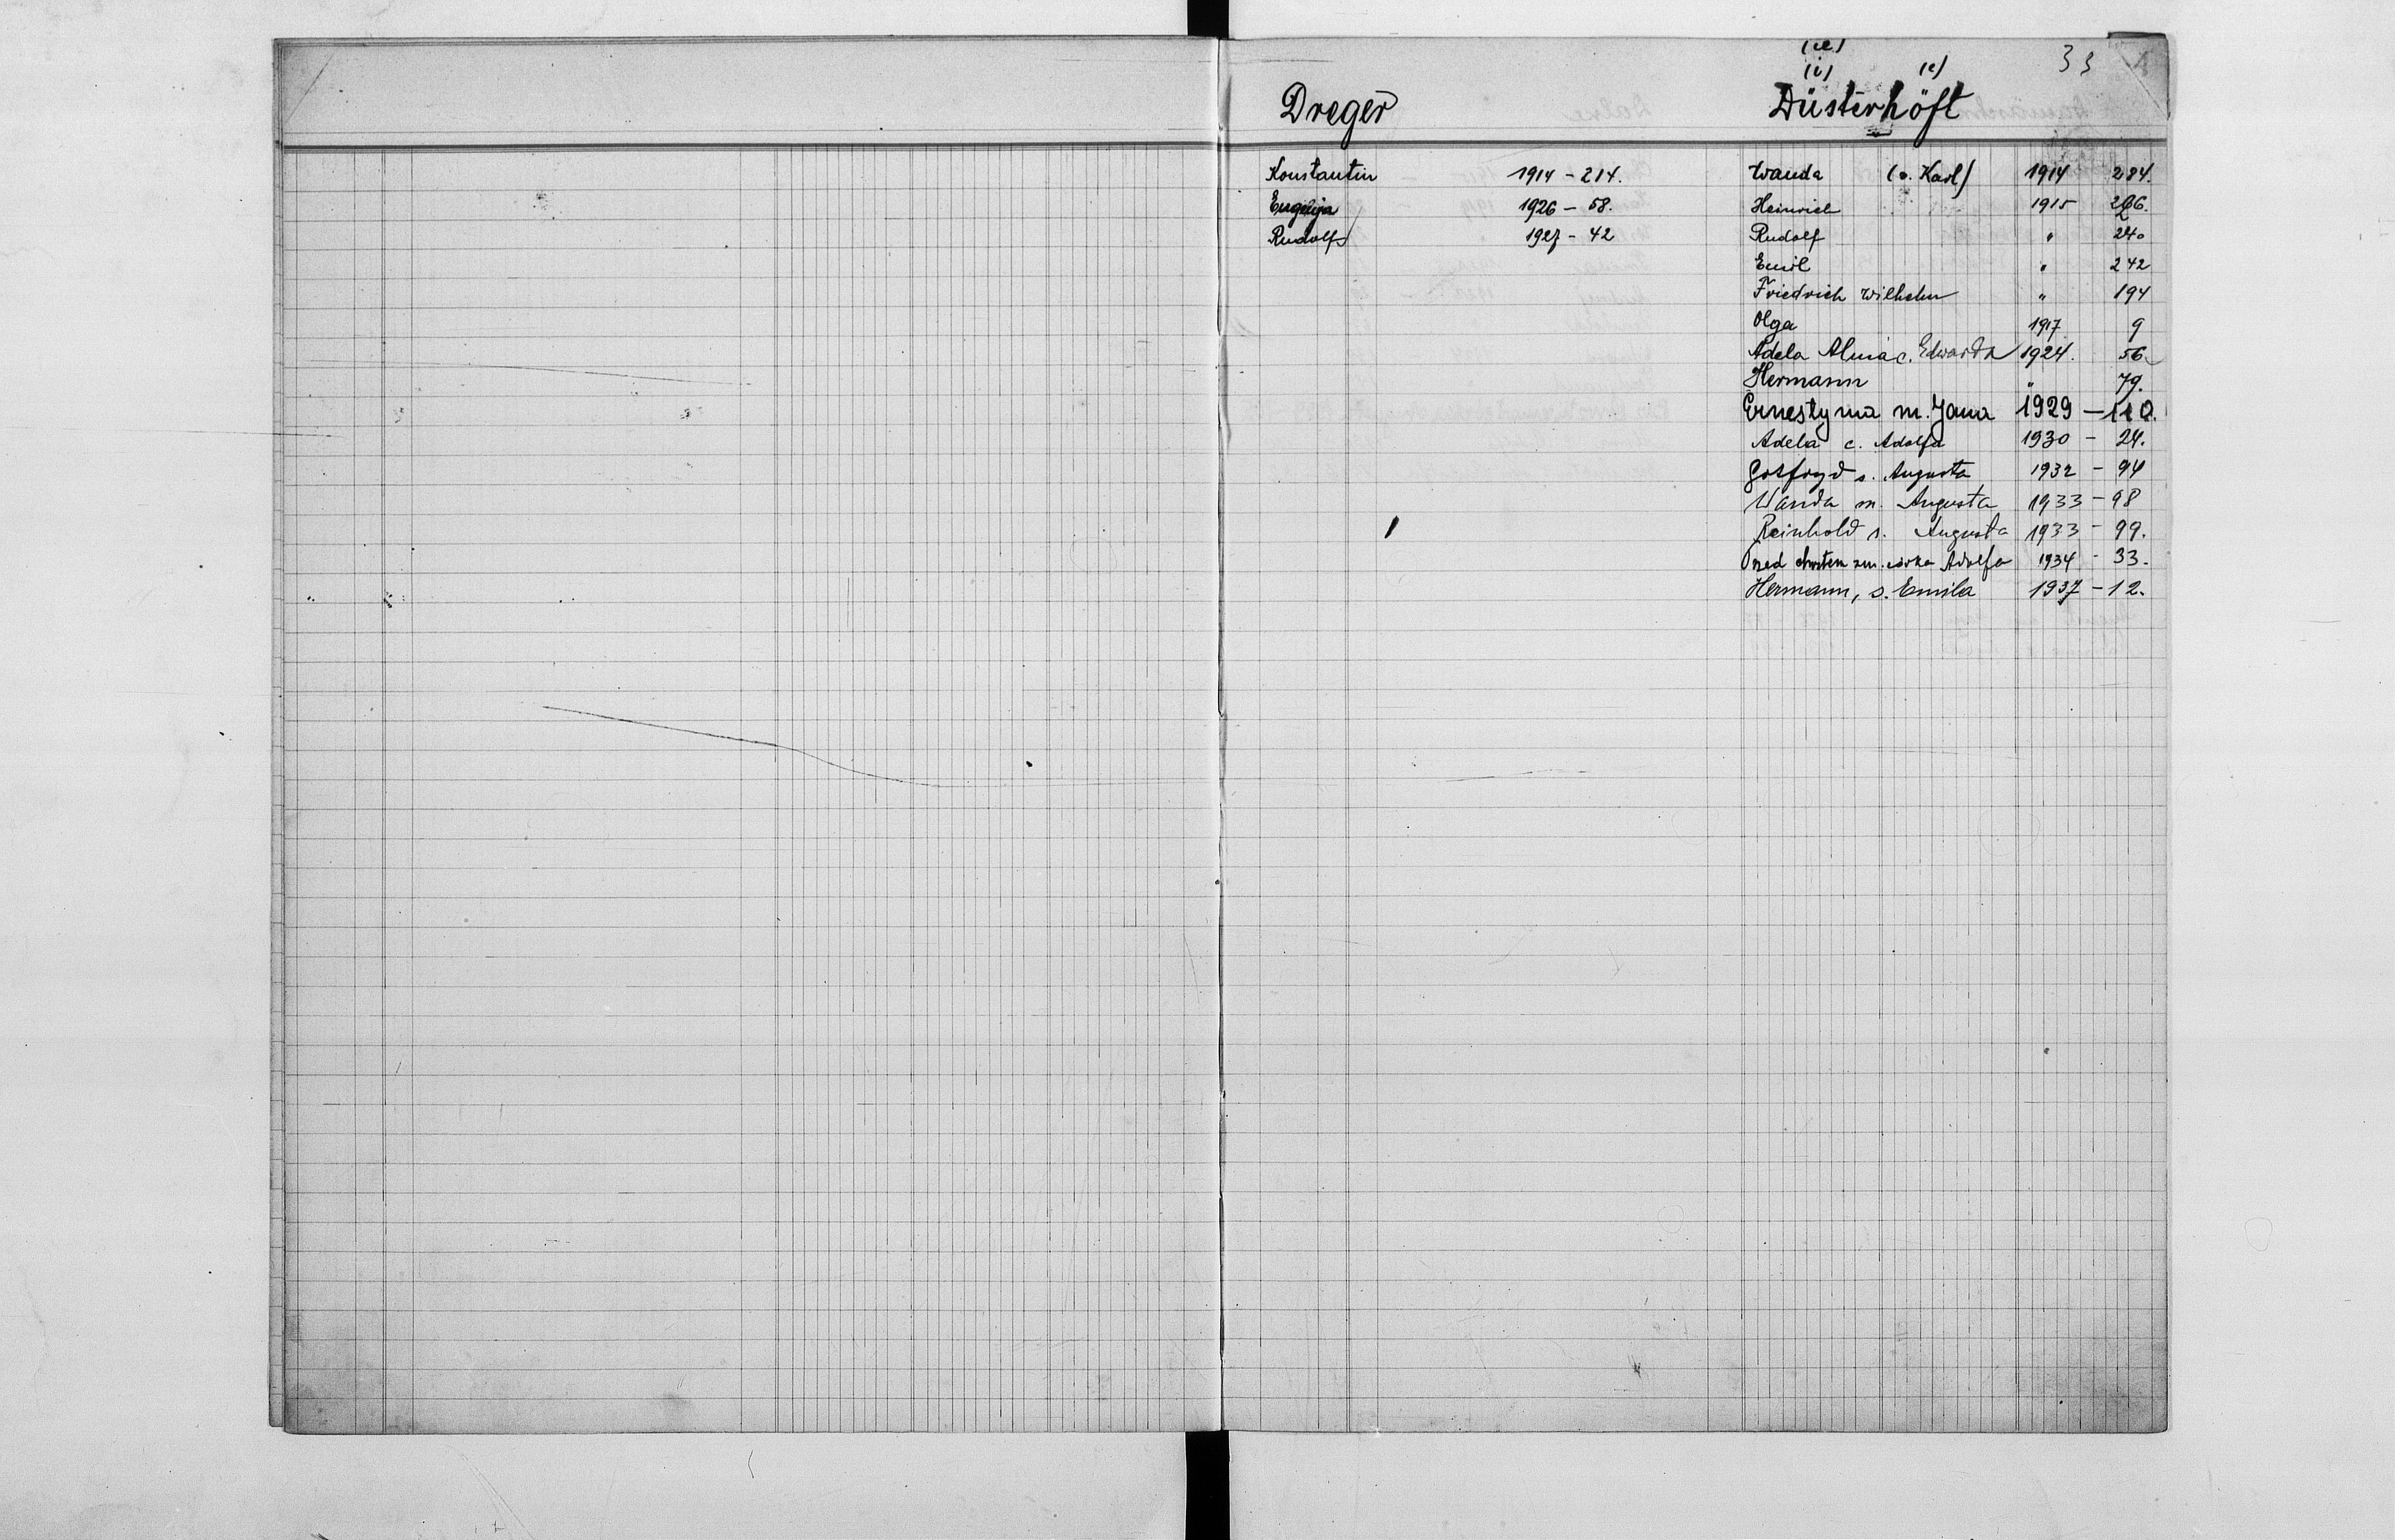 33
(ue)
(i) (e)
Dreger
Konstantin 1914 - 214.
Eugenja 1926 - 58.
Rudolf 1927 - 42
Düsterhöft
Wanda (v. Karl) 1914 284.
Heinrich 1915
Rudolf " 240
Emil " 242
Friedrich Wilhelm " 194
Olga 1917 9
Adela Alma c. Edwarda 1924. 56
Hermann " 79.
Ernestyna m. Jana 1929 - 110.
Adela c. Adolfa 1930 - 24.
Gotfryd s. Augusta 1932 - 94
Wanda m. Augusta 1933 - 98
Reinhold s. Augusta 1933 - 99.
Przed chrztem zm. córka Adolfa 1934 - 33.
Hermann, s. Emila 1937 - 12.